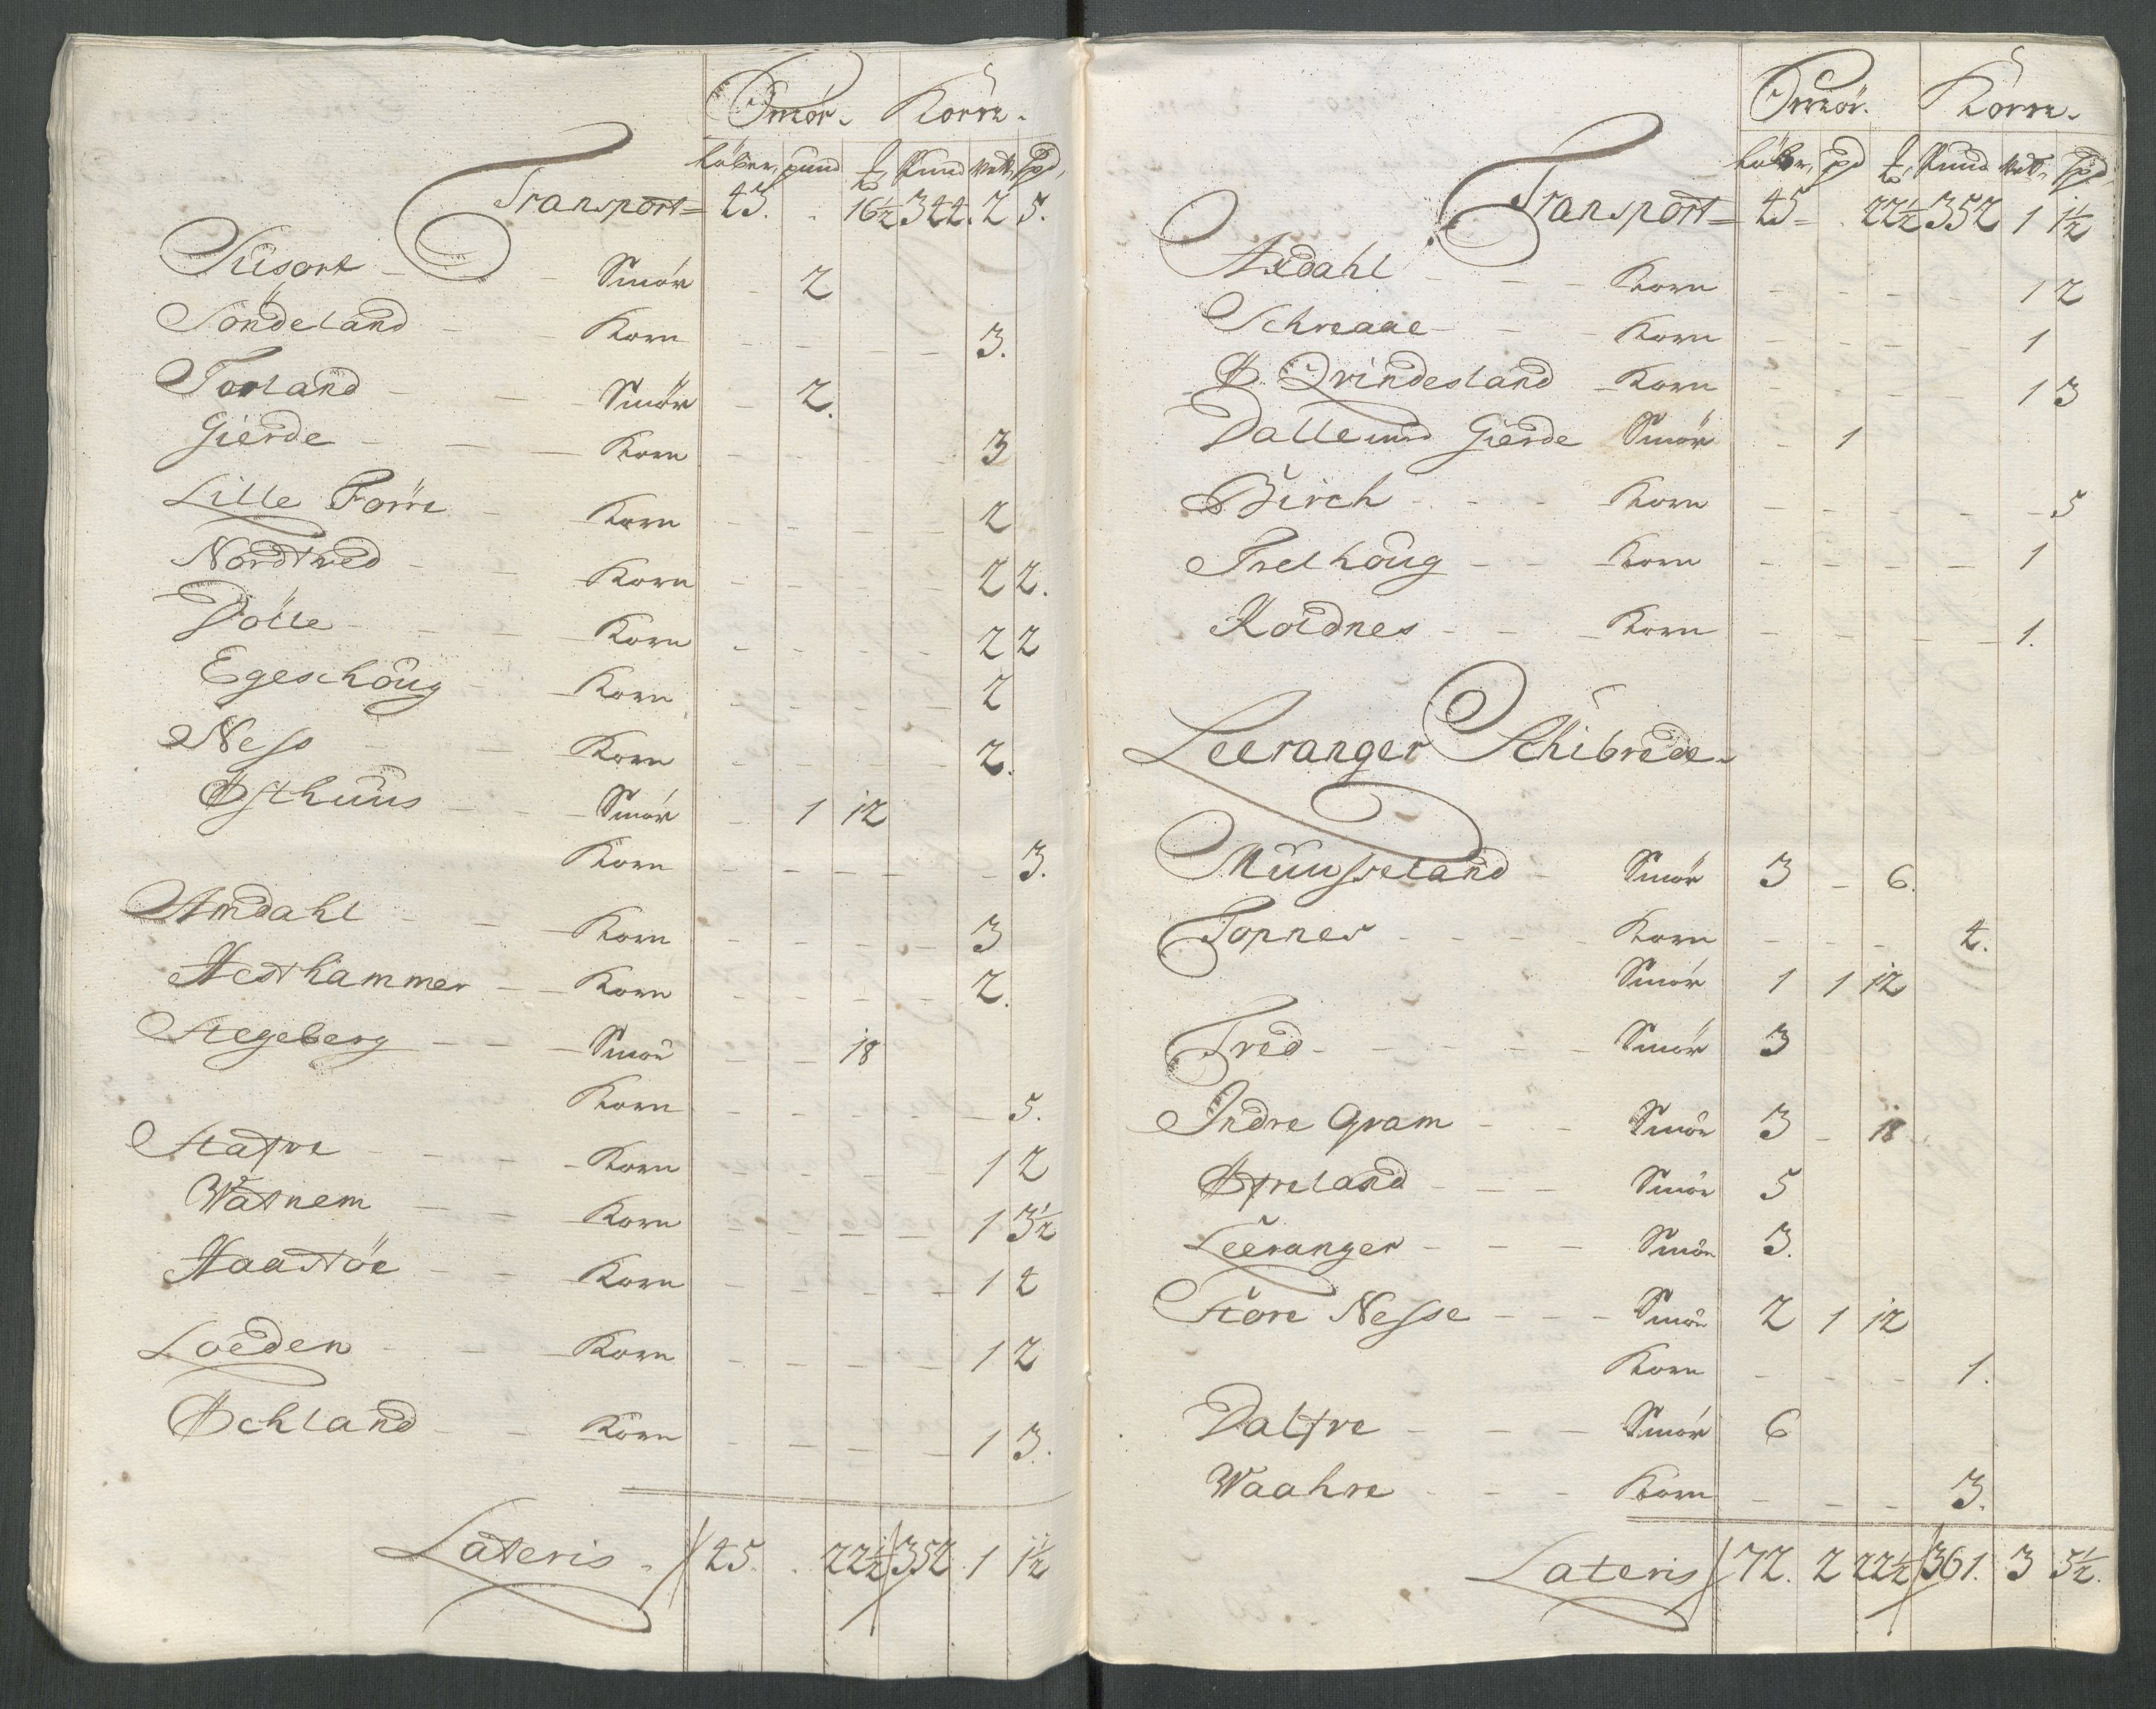 Smör. Korn.
Löber, pund ℔, Pund Vett, Spd,
Transport= 43. . 16½ 344. 2 5.
Siisort Smör 2
Söndeland Korn 3.
Torland Smör 2.
Gierde Korn 3
Lille Forre Korn 2
Nordtved Korn 2 2.
Dölle Korn 2 2
Egeschoug Korn 2
Ness Korn 2.
Østhuus Smör 1 12
Korn 3.
Amdahl Korn 3
Hesthammer Korn 2.
Stegeberg Smör 18
Korn 5.
Statvre Korn 1 2
Watnem Korn 1 3½
Haastöe Korn 1 4
Loeden Korn 1 2
Øchland Korn 1 3.
Lateris. 45. . 22½ 352. 1 1½
Smör. Korn.
Löber, pd ℔, Pund Vett, Spd,
Transport= 45 . 22½ 352 1 1½
Axdahl Korn 1 2
Schreaae Korn 1
Ø. Qvindesland Korn 1 3
Dalle und Gierde Smör 1
Birch Korn 5
Trelhoug Korn 1
Koidnes Korn 1.
Leeranger Schibrede.
Muusseland Smör 3 6.
Topnes Korn 4.
Smör 1 1 12
Tred Smör 3
Indre Qvam Smör 3 18
Øfreland Smör 5
Leeranger Smör 3.
Store Nesse Smör 2 1 12
Korn 1.
Daltvre Smör 6
Waahre Korn 3.
Lateris 72. 2 22½ 361. 3 5½.